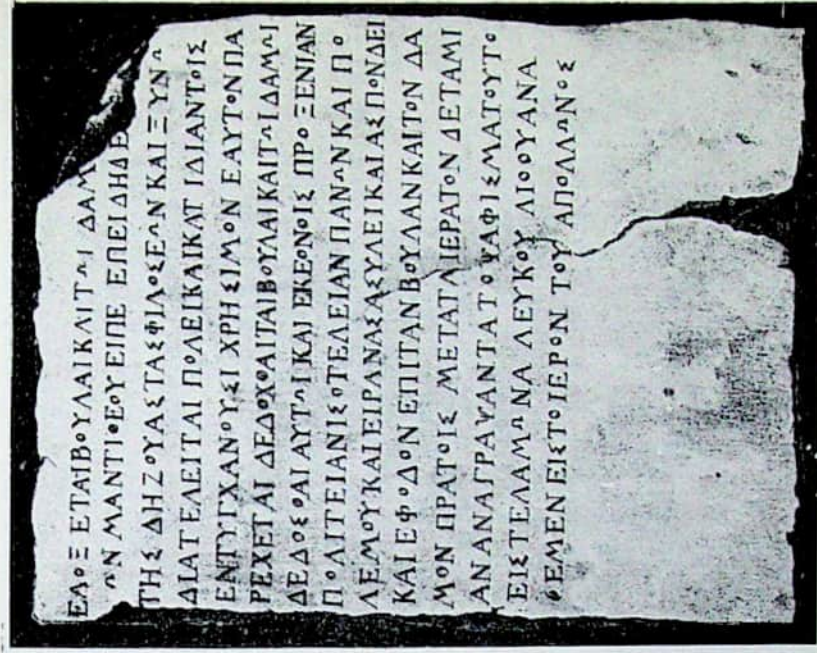 ΕΔΟΞΕΤΑΙΒΟΥΛΑΙΚΑΙΤΩΙ ΔΑΜ
ΩΝ ΜΑΝΤΙΘΕΟΥ ΕΙΠΕ ΕΠΕΙΔΗΔΕ
ΤΗΣ ΔΗΖΟΥΑΣΤΑΣΦΙΛΟΣΕΩΝ ΚΑΙ ΞΥΝΩ
ΔΙΑΤΕΛΕΙΤΑΙ ΠΟΛΕΙΚΑΙΚΑΤ ΙΔΙΑΝΤΟΙΣ
ΕΝΤΥΓΧΑΝΟΥΣΙ ΧΡΗΣΙΜΟΝ ΕΑΥΤΟΝΠΑ
ΡΕΧΕΤΑΙ ΔΕΔΟΧΘΑΙΤΑΙΒΟΥΛΑΙΚΑΙΤΩΙΔΑΜΩΙ
ΔΕΔΟΣΘΑΙ ΑΥΤΩΙ ΚΑΙ ΕΚΓΟΝΟΙΣ ΠΡΟΞΕΝΙΑΝ
ΠΟΛΙΤΕΙΑΝΙΣΟΤΕΛΕΙΑΝ ΠΑΝΩΝ ΚΑΙ ΠΟ
ΛΕΜΟΥΚΑΙΕΙΡΑΝΑΣΑΣΥΛΕΙΚΑΙΑΣΠΟΝΔΕΙ
ΚΑΙΕΦΟΔΟΝ ΕΠΙΤΑΝ ΒΟΥΛΑΝΚΑΙΤΟΝ ΔΑ
ΜΟΝ ΠΡΑΤΟΙΣ ΜΕΤΑΤΑΙΕΡΑΤΟΝ ΔΕΤΑΜΙ
ΑΝΑΝΑΓΡΑΨΑΝΤΑΤΟΨΑΦΙΣΜΑΤΟΥΤΟ
ΕΙΣΤΕΛΑΜΩΝΑ ΛΕΥΚΟΥ ΛΙΘΟΥΑΝΑ
ΘΕΜΕΝ ΕΙΣΤΟΙΕΡΟΝ ΤΟΥ ΑΠΟΛΛΩΝΟΣ